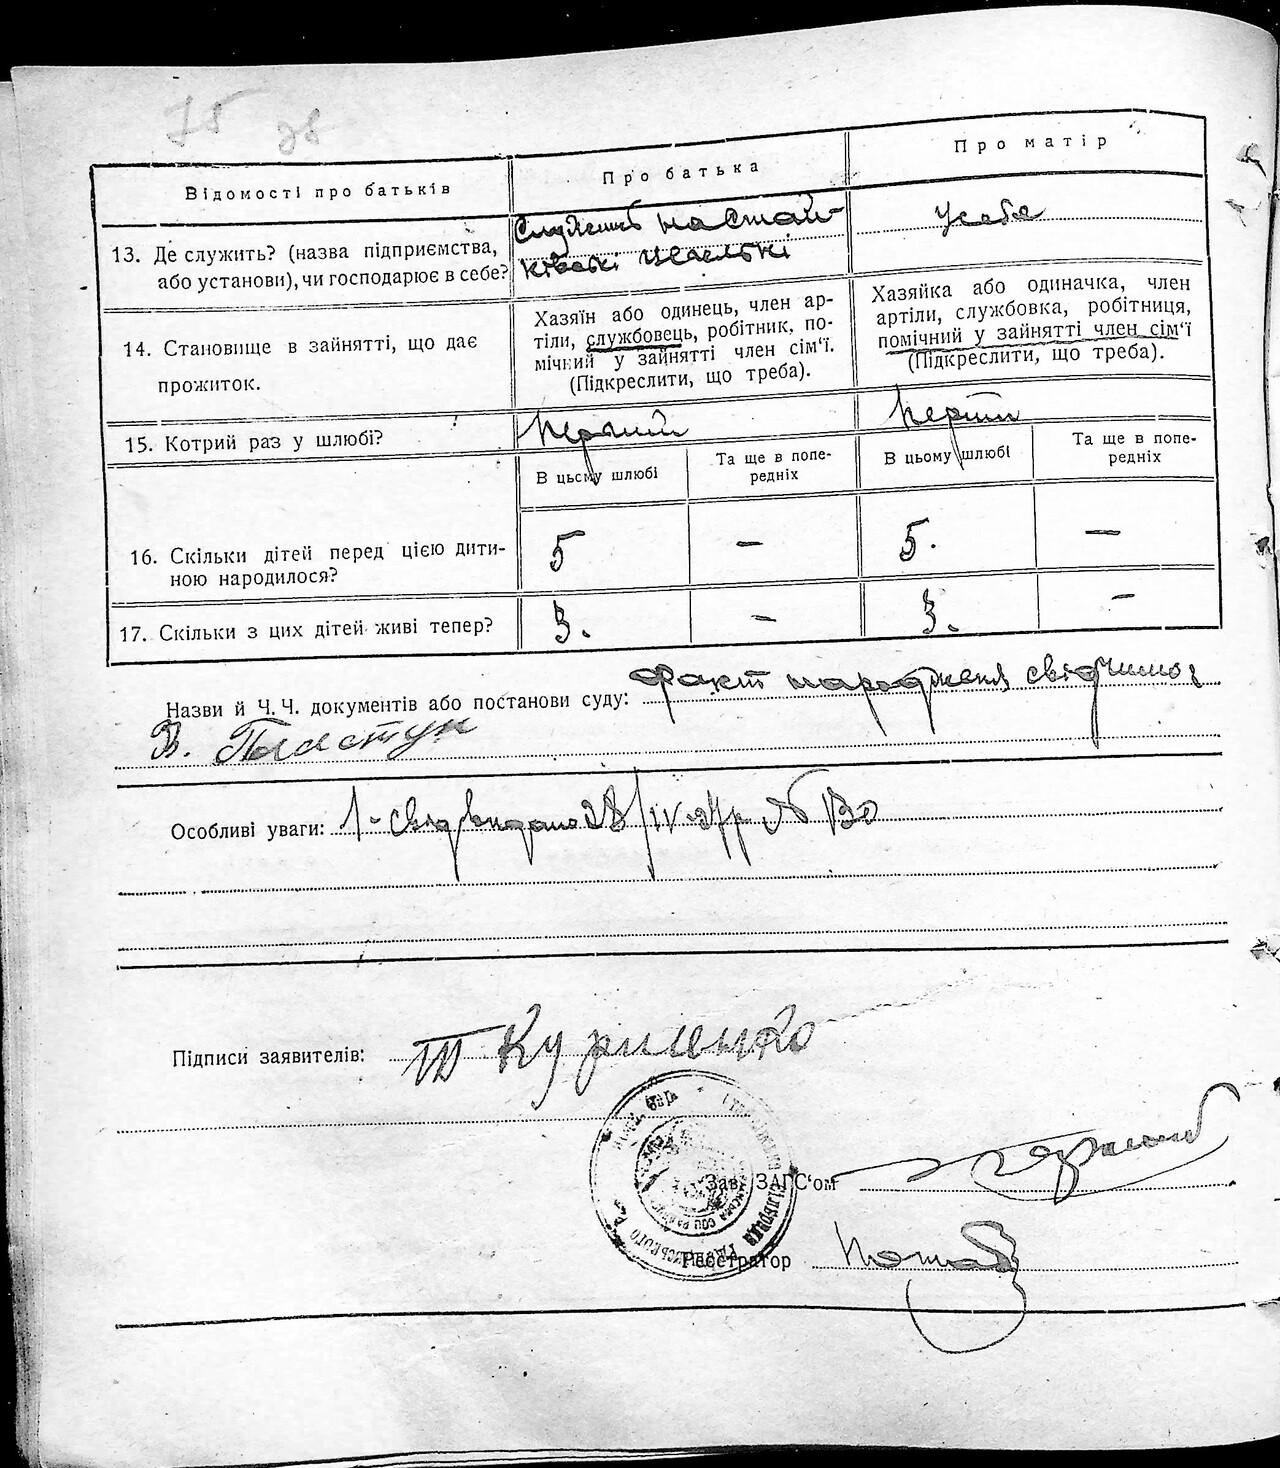 75 зв
Відомості про батьків
Про батька
Про матір
13. Де служить? (назва підприємства,
або установи), чи господарює в себе?
Служить на Стай-
ківські школі
У себе
14. Становище в зайнятті, що дає
прожиток.
Хазяїн або одинець, член ар-
тіли, службовець, робітник, по-
мічний у зайнятті член сім'ї.
(Підкреслити, що треба).
Хазяйка або одиначка, член
артіли, службовка, робітниця,
помічний у зайнятті член сім'ї
(Підкреслити, що треба).
15. Котрий раз у шлюбі?
Перший
Перший
В цьому шлюбі
Та ще в попе-
редніх
В цьому шлюбі
Та ще в попе-
редніх
16. Скільки дітей перед цією дити-
ною народилося?
5
—
5.
—
17. Скільки з цих дітей живі тепер?
3.
—
3.
—
Назви й Ч. Ч. документів або постанови суду: Факт народження свідчимо:
В. Пластун
Особливі уваги: 1- свід видано 28/IV-27р № 130
Підписи заявителів: Куриленко
Зав. ЗАГС'ом
Реєстратор